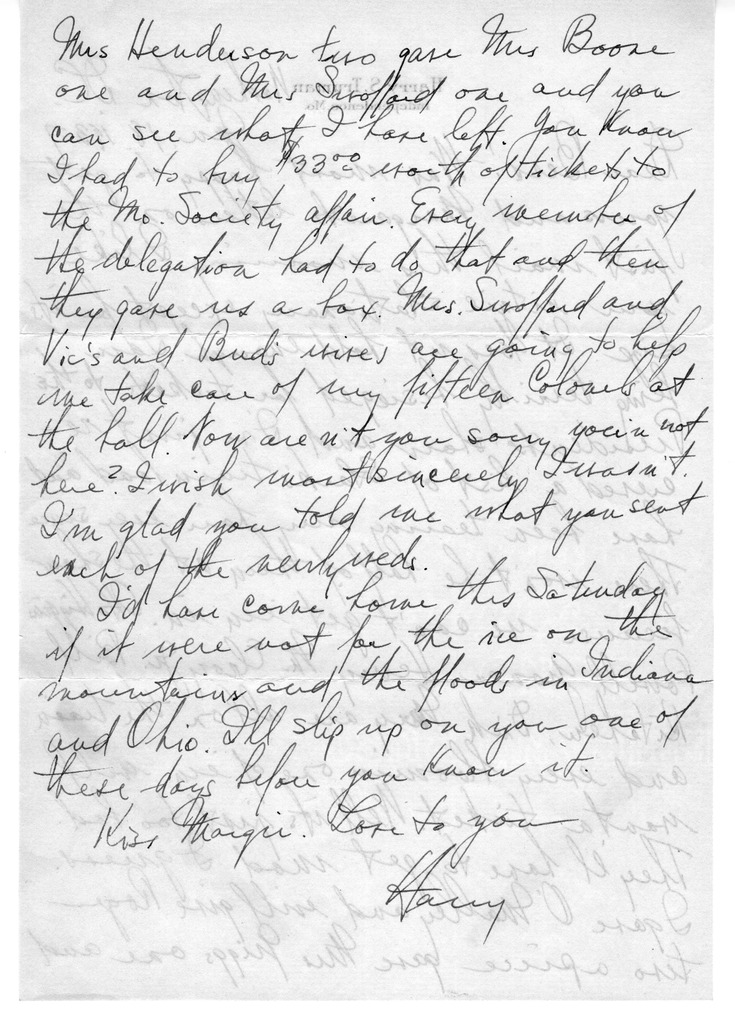 Mrs Henderson two gave Mrs Boone
one and Mrs Swofford one and you
can see what I have left. You know
I had to buy $33.00 worth of tickets to
the Mo. Society affair. Every member of
the delegation had to do that and then
they gave us a box. Mrs. Swofford and
Vic's and Bud's wives are going to help
me take care of my fifteen Colonels at
the ball. Now aren't you sorry you're not
here? I wish most sincerely I wasn't.
I'm glad you told me what you sent
each of the newlyweds.
I'd have come home this Saturday
if it were not for the ice on the
mountains and the floods in Indiana
and Ohio. I'll slip up on you one of
these days before you know it.
Kiss Margie. Love to you
Harry